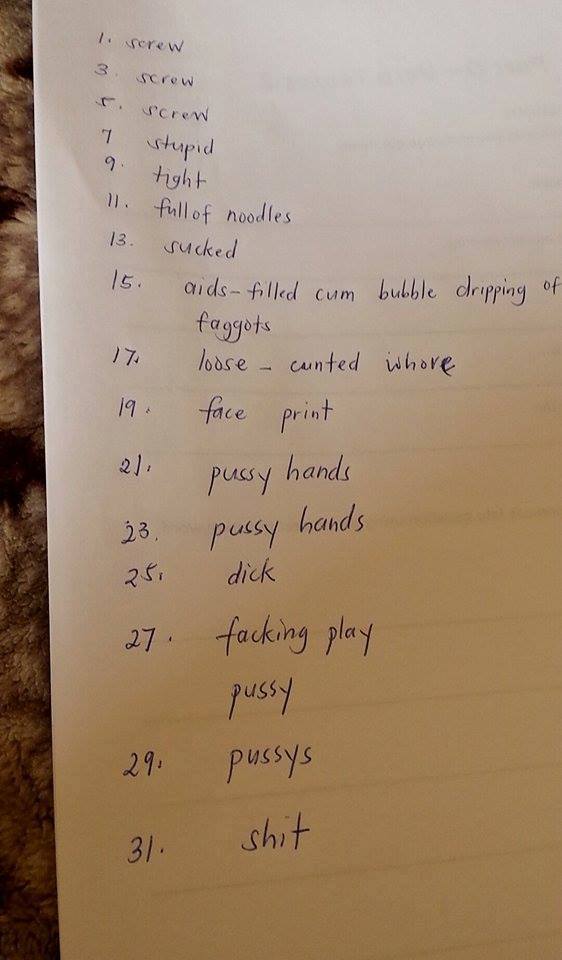 1. screw
3. screw
5. screw
7 stupid
9. tight
11. full of noodles
13. sucked
15. aids-filled cum bubble dripping of
faggots
17. loose - cunted whore
19. face print
21. pussy hands
23. pussy hands
25. dick
27. facking play
pussy
29. pussys
31. shit